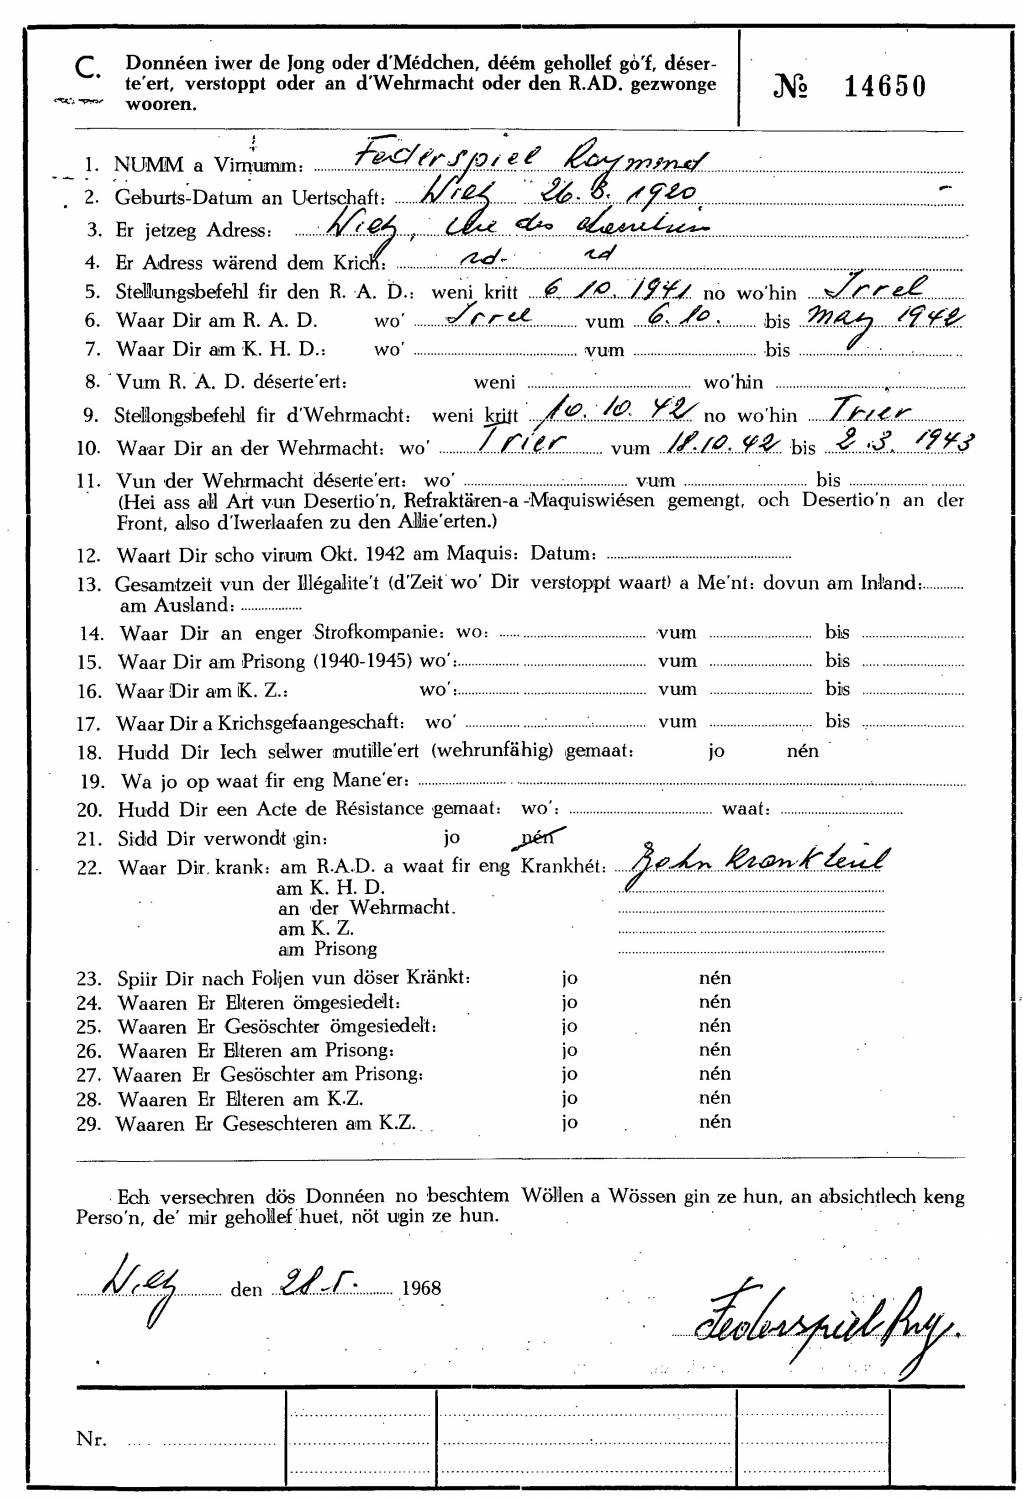 C. Donnéen iwer de Jong oder d'Médchen, déém gehollef gò'f, déser-
te'ert, verstoppt oder an d'Wehrmacht oder den R.AD. gezwonge
wooren.
№ 14650
1. NUMM a Virnumm: Federspiel Raymond
2. Geburts-Datum an Uertschaft: Wiltz 26.8.1920
3. Er jetzeg Adress: Wiltz, des
4. Er Adress wärend dem Krich: id. id
5. Stellungsbefehl fir den R. A. D.: weni kritt 6 10. 1941 no wo'hin Irrel
6. Waar Dir am R. A. D. wo' Irrel vum 6.10. bis May 1942
7. Waar Dir am K. H. D.: wo' vum bis
8. Vum R. A. D. déserte'ert: weni wo'hin
9. Stellongsbefehl fir d'Wehrmacht: weni kritt 10. 10. 42 no wo'hin Trier
10. Waar Dir an der Wehrmacht: wo' Trier vum 18.10.42 bis 2.3.1943
11. Vun der Wehrmacht déserte'ert: wo' vum bis
(Hei ass all Art vun Desertio'n, Refraktären-a-Maquiswiésen gemengt, och Desertio'n an der
Front, also d'Iwerlaafen zu den Allie'erten.)
12. Waart Dir scho virum Okt. 1942 am Maquis: Datum:
13. Gesamtzeit vun der Illégalite't (d'Zeit wo' Dir verstoppt waart) a Me'nt: dovun am Inland:
am Ausland:
14. Waar Dir an enger Strofkompanie: wo: vum bis
15. Waar Dir am Prisong (1940-1945) wo': vum bis
16. Waar Dir am K. Z.: wo': vum bis
17. Waar Dir a Krichsgefaangeschaft: wo' vum bis
18. Hudd Dir Iech selwer mutille'ert (wehrunfähig) gemaat: jo nén
19. Wa jo op waat fir eng Mane'er:
20. Hudd Dir een Acte de Résistance gemaat: wo': waat:
21. Sidd Dir verwondt gin: jo nén
22. Waar Dir krank: am R.A.D. a waat fir eng Krankhét:
am K. H. D.
an der Wehrmacht.
am K. Z.
am Prisong
23. Spiir Dir nach Foljen vun döser Kränkt: jo nén
24. Waaren Er Elteren ömgesiedelt: jo nén
25. Waaren Er Gesöschter ömgesiedelt: jo nén
26. Waaren Er Elteren am Prisong: jo nén
27. Waaren Er Gesöschter am Prisong: jo nén
28. Waaren Er Elteren am K.Z. jo nén
29. Waaren Er Geseschteren am K.Z. jo nén
Ech versechren dös Donnéen no beschtem Wöllen a Wössen gin ze hun, an absichtlech keng
Perso'n, de' mir gehollef huet, nöt ugin ze hun.
Wiltz den 28.5. 1968
Federspiel Ray.
Nr.